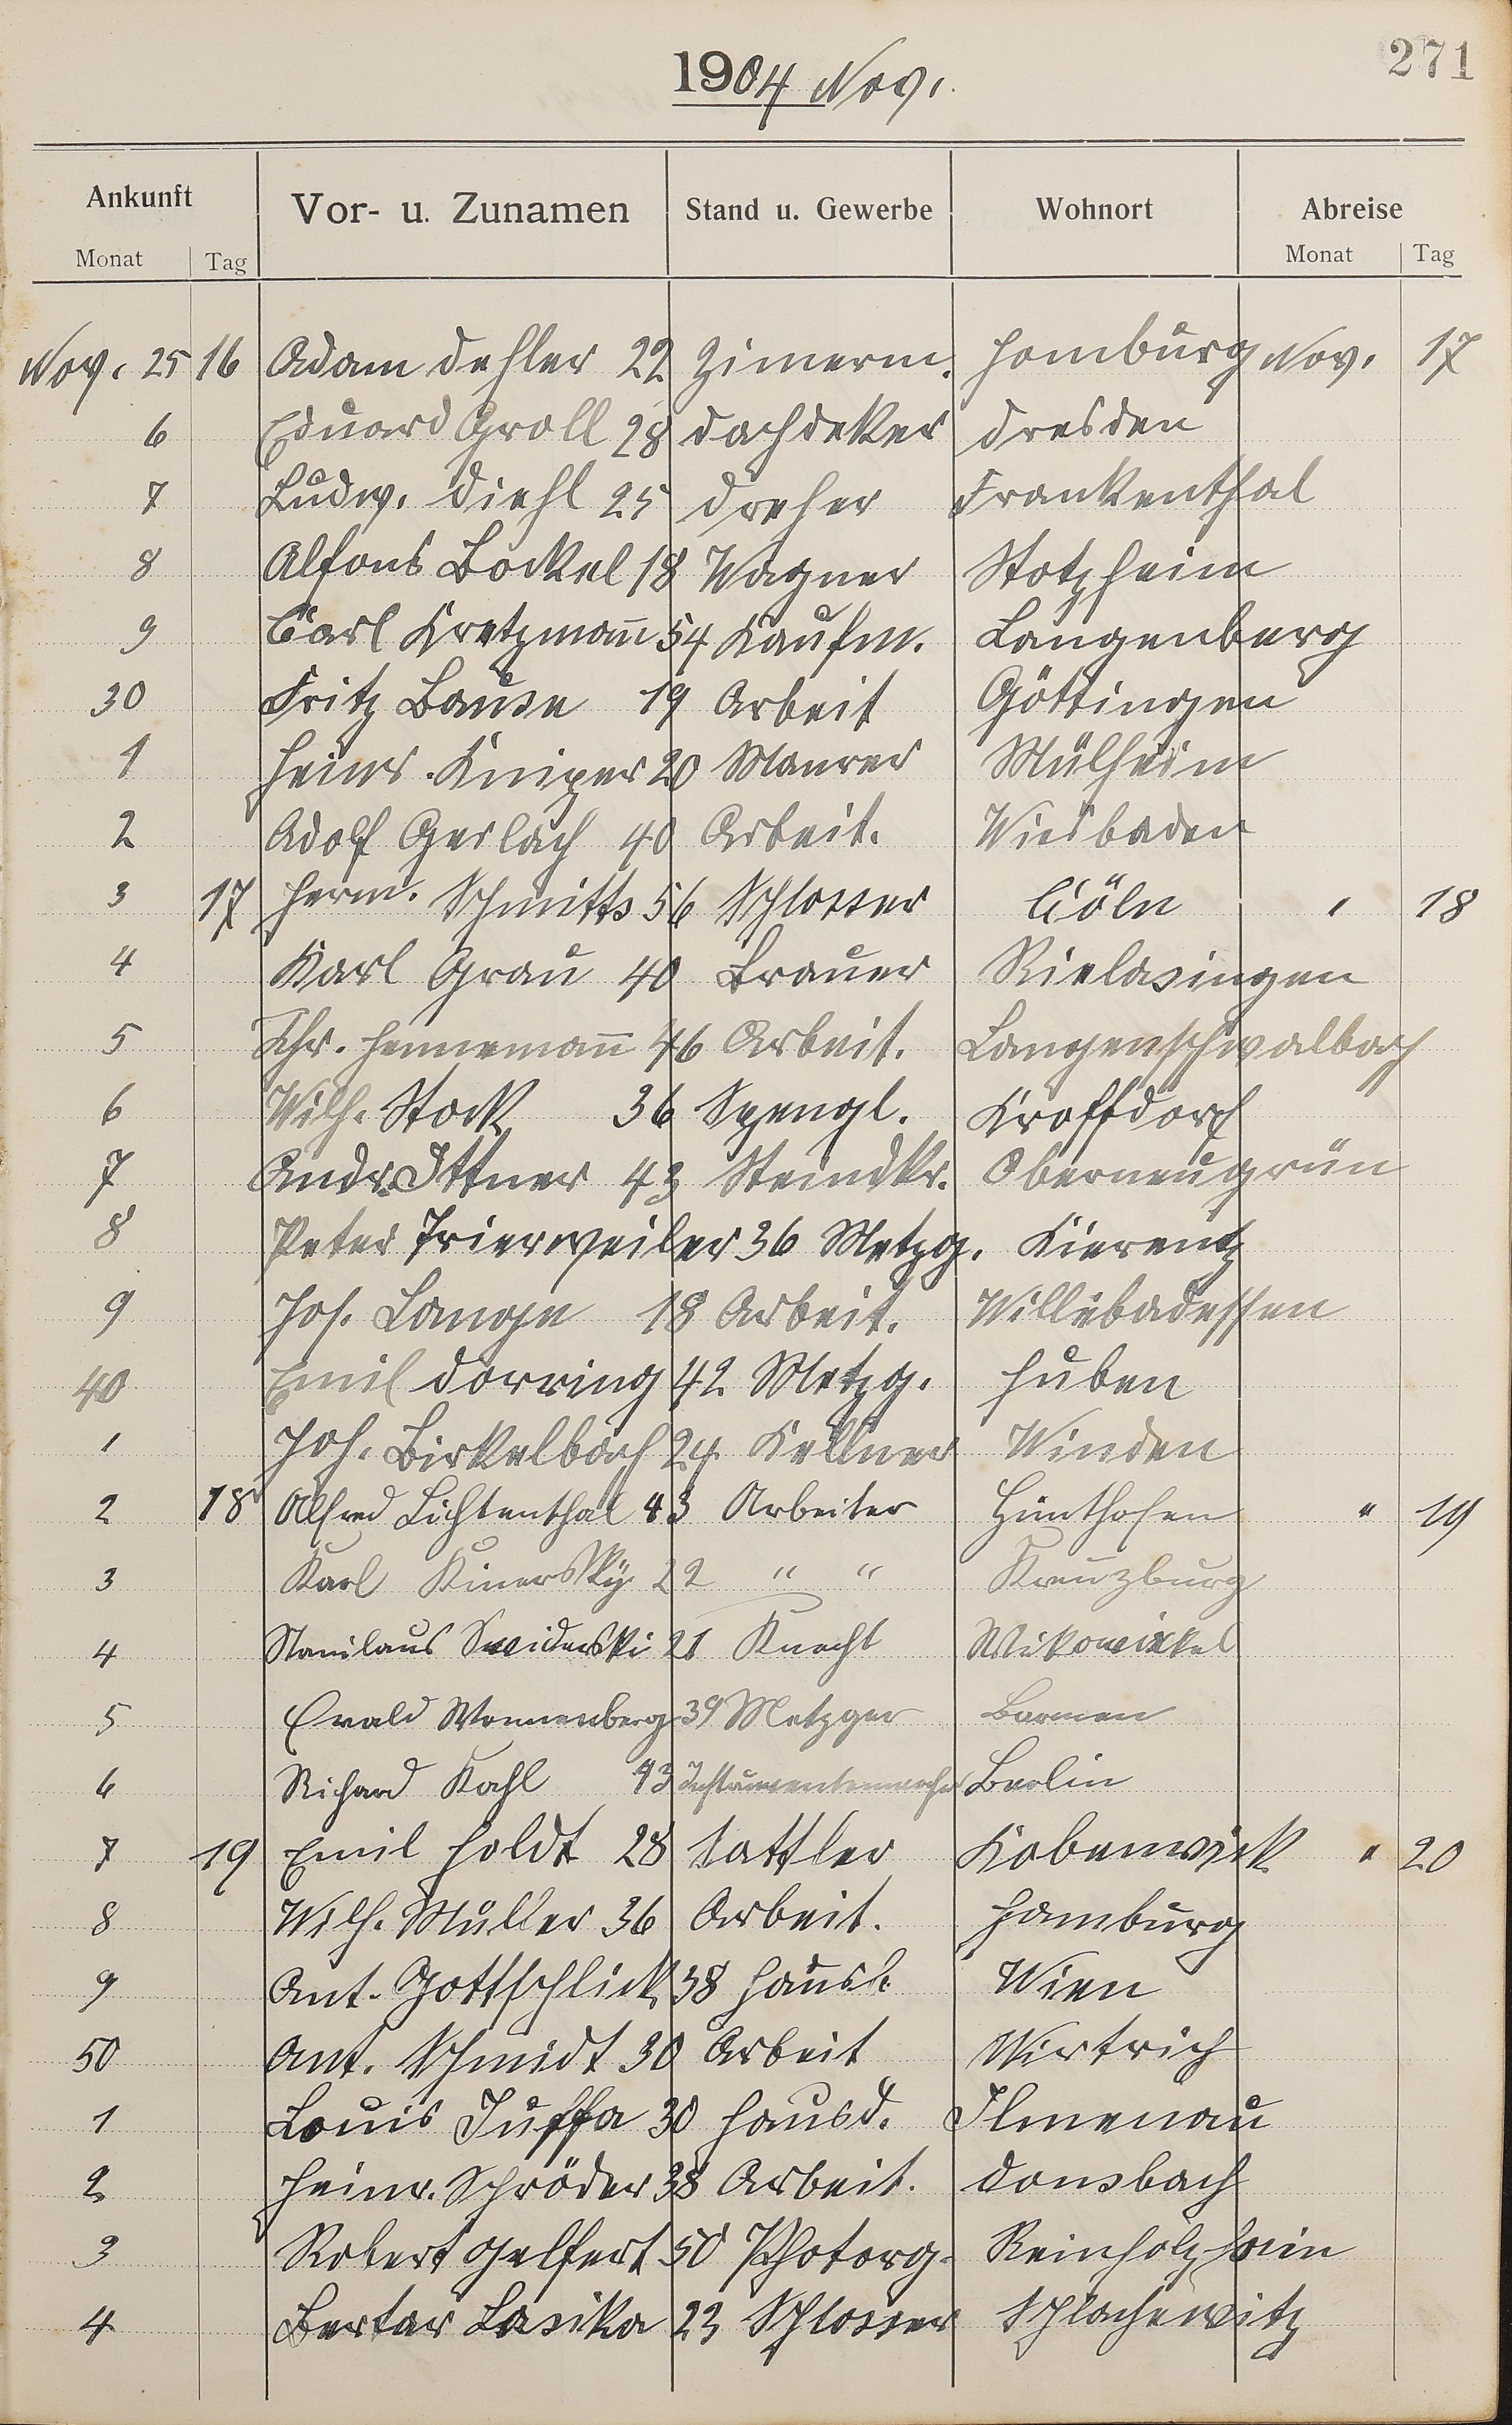 271
1904 Nov.
Ankunft Vor- u. Zunamen Stand u. Gewerbe Wohnort Abreise
Monat Tag Monat Tag
Nov. 25 16 Adam Dehler 22 Zimerm. Homburg Nov. 17
6 Eduard Groll 28 Dachdeker Dresden
7 Ludw. Diehl 25 Dreher Frankenthal
8 Alfons Bockel 18 Wagner Stotzheim
9 Carl Kretzmann 54 Kaufm. Langenberg
30 Fritz Bause 19 Arbeit Göttingen
1 Heinr. Kniper 20 Maurer Mülheim
2 Adolf Gerlach 40 Arbeit. Wiesbaden
3 17 Herm. Schmitts 56 Schlosser Cöln " 18
4 Karl Grau 40 Brauer Rielasingen
5 Chr. Hennemann 46 Arbeit. Langenschwalbach
6 Wilh. Stock 36 Spengl. Kroffdorf
7 Andr. Ittner 43 Steindkr. Oberneugrün
8 Peter Trierweiler 36 Metzg. Kierentz
9 Jos. Lange 18 Arbeit. Willebadessen
40 Emil Dorring 42 Metzg. Huben
1 Joh. Birkelbach 24 Kellner Winden
2 18 Alfred Lichtenthal 43 Arbeiter Hünthofen " 19
3 Karl Kinersky 22 " " Kreuzburg
4 Stanilaus Swiderski 21 Knecht
5 Ewald Wonnenberg 39 Metzger Barmen
6 Richard Kahl 43 Instrumentenmacher Berlin
7 19 Emil Holdt 28 Sattler Kobenwick " 20
8 Wilh. Müller 36 Arbeit. Hamburg
9 Ant. Gottschlick 38 Hausb. Wien
50 Ant. Schmidt 30 Arbeit Wirtrich
1 Louis Juffa 30 Hausd. Ilmenau
2 Heinr. Schröder 38 Arbeit. Donsbach
3 Robert Gelfert 50 Photorg. Reinholzhain
4 Bertar Lasika 23 Schlosser Schlachewitz